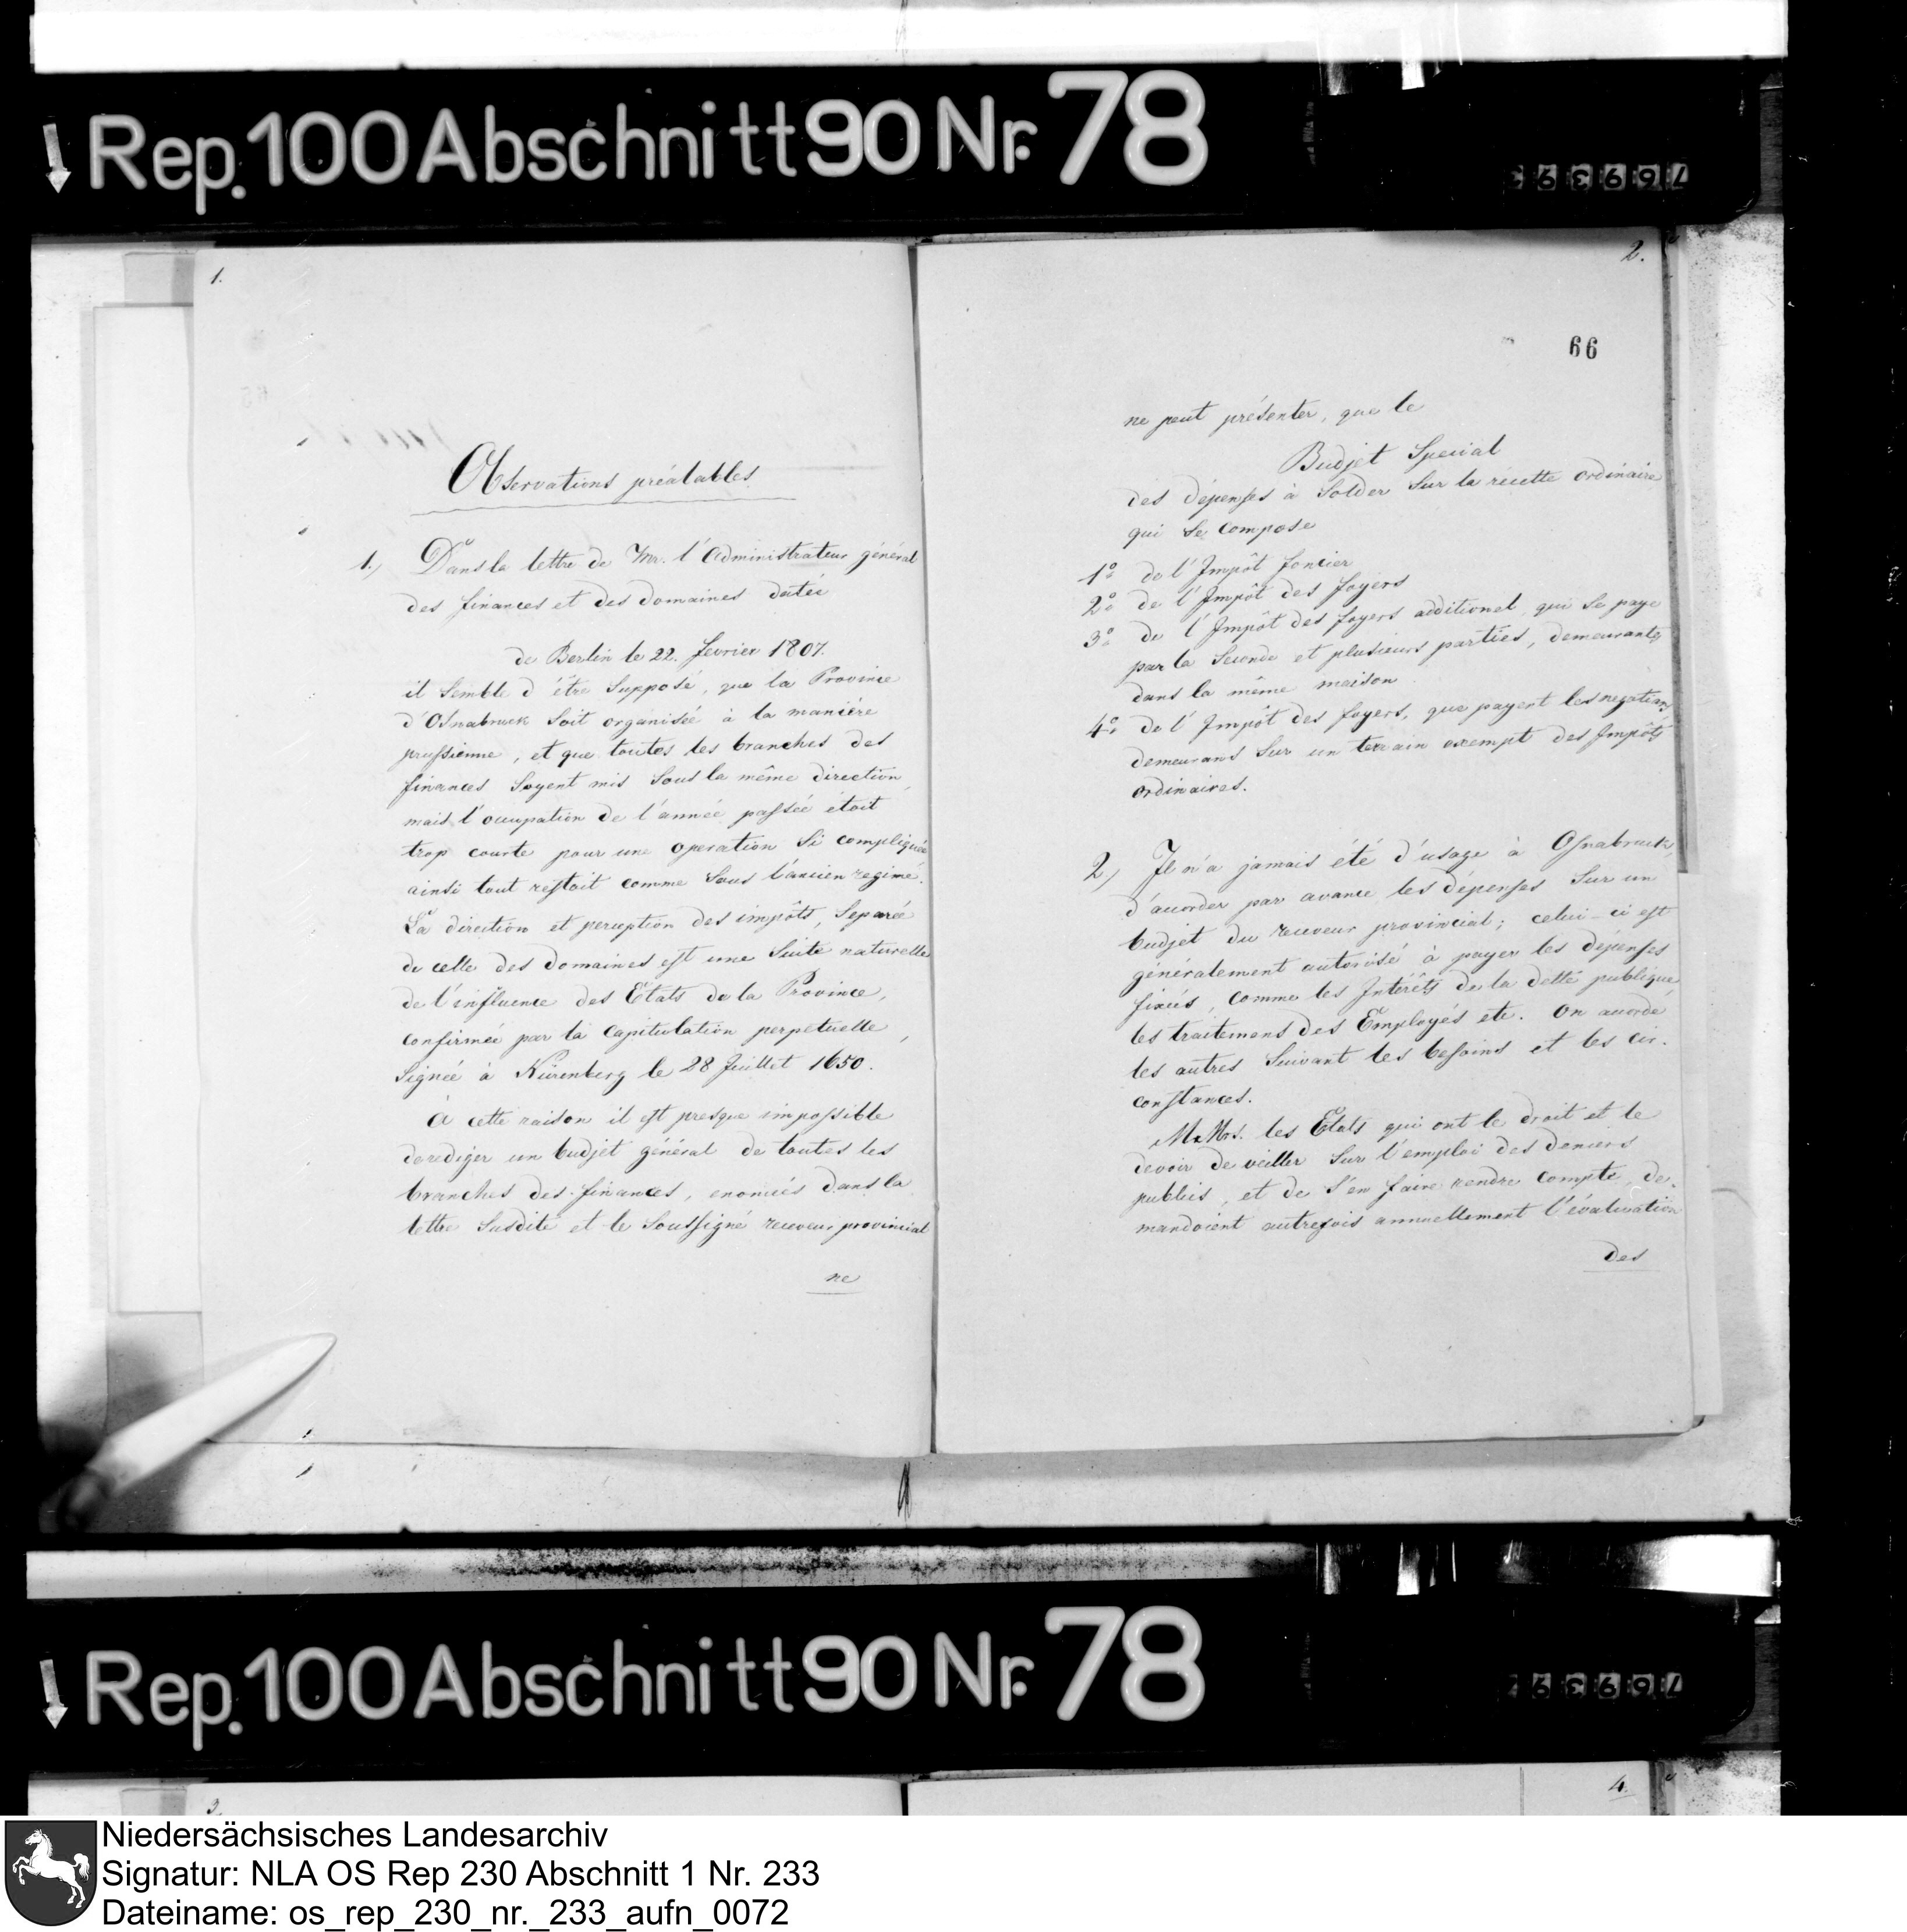 Rep. 100 Abschnitt 90 Nr. 78
769393
1.
Observations préalables
1.) Dans la lettre de Mr. l'Administrateur général
des finances et des domaines datée
de Berlin le 22. fevrier 1807.
il Semble d'être Supposé, que la Province
d'Osnabruck Soit organisée à la manière
prussienne, et que toutes les branches des
finances Soyent mis Sous la même direction,
mais l'occupation de l'année passée étoit
trop courte pour une operation Si compliquée
ainsi tout restoit comme Sous l'ancien regime.
La direction et perception des impôts, Separée
de celle des domaines est une Suite naturelle
de l'influence des Etats de la Province,
confirmée par la capitulation perpetuelle,
Signée à Nürenberg le 28 Juillet 1650.
À cette raison il est presque impossible
derediger un budjet général de toutes les
branches des finances, enoncés dans la
lettre Susdite et le Soussigné receveur provincial
ne
2.
66
ne peut présenter, que le
Budjet Special
des dépenses à Solder Sur la recette ordinaire
qui Se compose
1o de l'Impôt foncier
2o de l'Impôt des foyers
3o de l'Impôt des foyers additionel, qui Se paye
par la Seconde et plusieurs parties, demeurantes
dans la même maison
4o de l'Impôt des foyers, que payent les negotians
demeurans Sur un terrain exempt des Impôts
ordinaires.
2.) Il n'a jamais été d'usage à Osnabruck,
d'accorder par avance les dépenses Sur un
budjet du receveur provincial; celui-ci est
généralement autorisé à payer les dépenses
fixées, comme les Intérêts de la dette publique,
les traitemens des Employés etc. On accorde
les autres Suivant les besoins et les cir-
constances.
M. Mrs. les Etats qui ont le droit et le
devoir de veiller Sur l'emploi des deniers
publics, et de S'en faire rendre compte, de-
mandoient autrefois annuellement l'évaluation
des
Rep. 100 Abschnitt 90 Nr. 78
3.
4.
Niedersächsisches Landesarchiv
Signatur: NLA OS Rep 230 Abschnitt 1 Nr. 233
Dateiname: os_rep_230_nr._233_aufn_0072